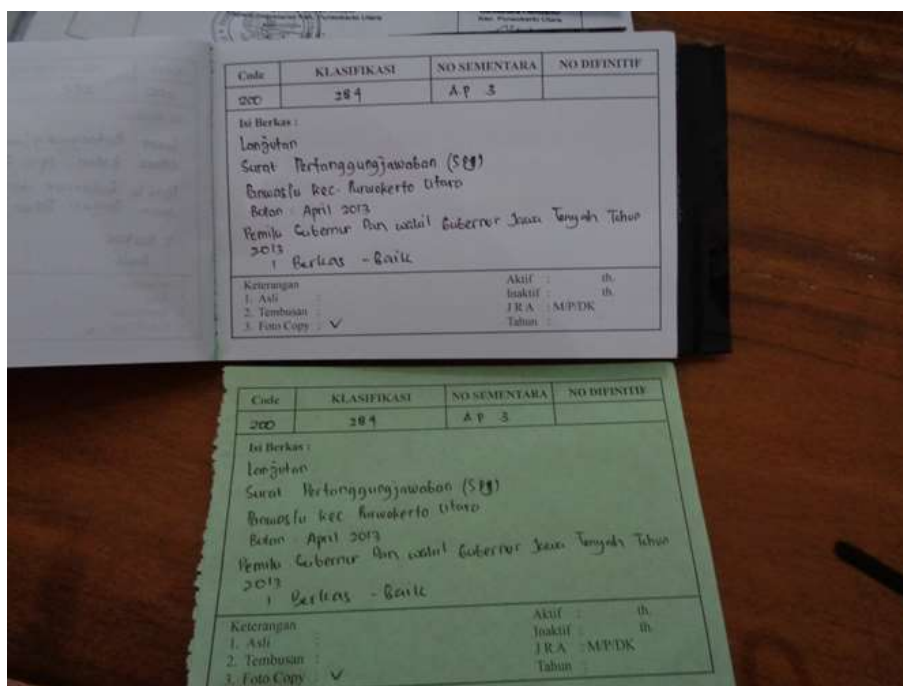 Kec. Purwokerto Utara
Code KLASIFIKASI NO SEMENTARA NO DIFINITIF
200 284 A.P 3
Isi Berkas :
Lanjutan
Surat Pertanggungjawaban (SPJ)
Panwaslu Kec. Purwokerto Utara
Bulan : April 2013
Pemilu Gubernur Dan wakil Gubernur Jawa Tengah Tahun
2013
1 Berkas - Baik
Keterangan Aktif : th.
1. Asli : Inaktif : th.
2. Tembusan : J R A : M/P/DK
3. Foto Copy : ✓ Tahun :
Code KLASIFIKASI NO SEMENTARA NO DIFINITIF
200 284 A P 3
Isi Berkas :
Lanjutan
Surat Pertanggungjawaban (SPJ)
Panwaslu Kec Purwokerto Utara
Bulan : April 2013
Pemilu Gubernur Dan wakil Gubernur Jawa Tengah Tahun
2013
1 Berkas - Baik
Keterangan Aktif : th.
1. Asli : Inaktif : th.
2. Tembusan : J R A : M/P/DK
3. Foto Copy : ✓ Tahun :